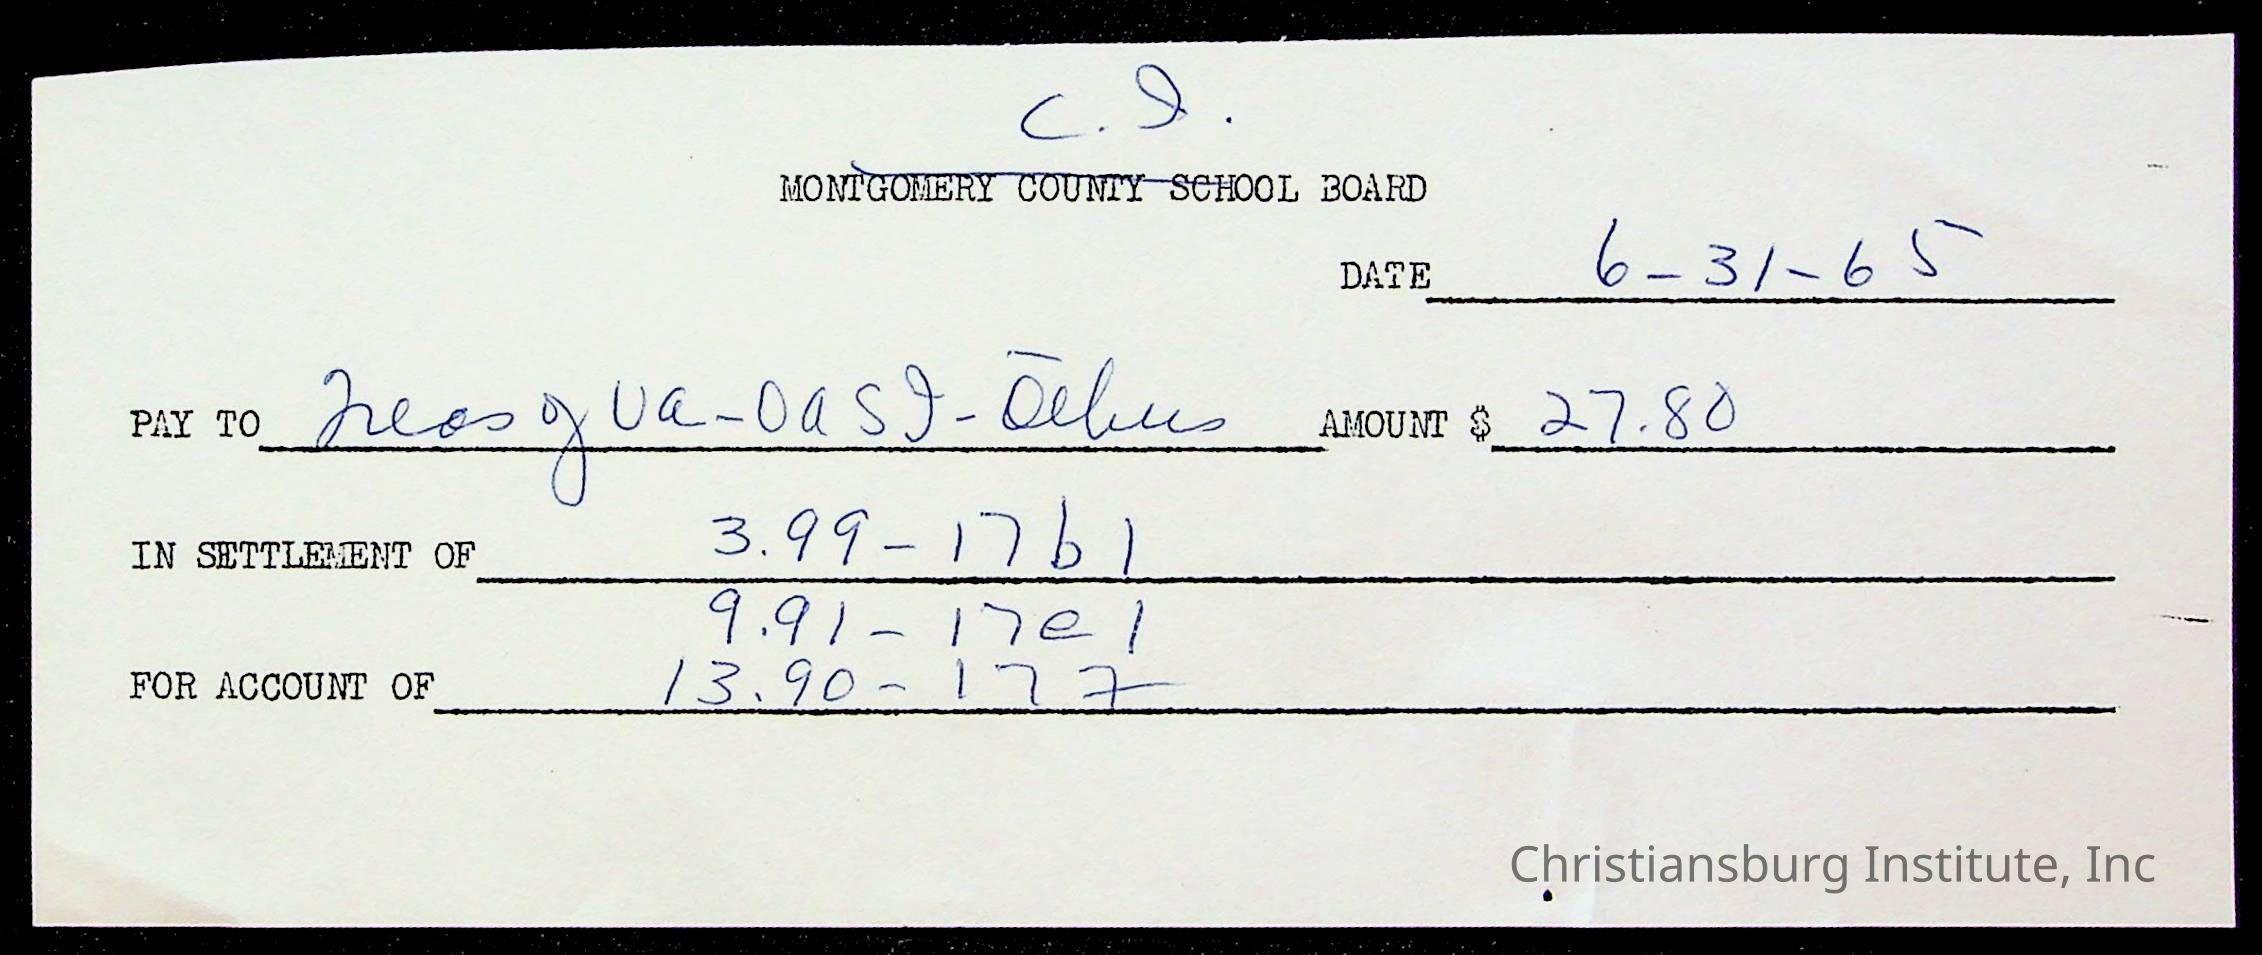 C. I.
MONTGOMERY COUNTY SCHOOL BOARD
DATE 6-31-65
PAY TO Treas of Va - OASI - Others AMOUNT $ 27.80
IN SETTLEMENT OF 3.99 - 17b1
9.91 - 17e1
FOR ACCOUNT OF 13.90 - 177
Christiansburg Institute, Inc